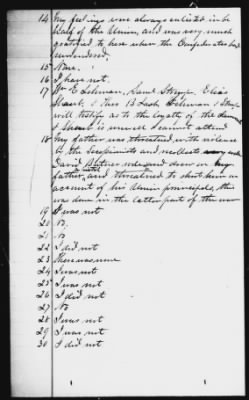 14 My feelings were always enlisted in be
half of the Union, and was very much
gratified to hear when the Confederates had
surrendered.
15 None.
16 I have not.
17 Wm E Eshman, Saml Stripe, Elias
Shaul, & Theo B Lash Eshman & Stripe
will testify as to the loyalty of the
Shaul is unwell & cannot attend
18 My father was threatened with violence
by the Secessionists and
David drew on my
father, and threatened to shoot him on
account of his Union principles, this
was done in the latter part of the war
19 I was not
20 No.
21 No.
22 I did not
23 There was none
24 I was not
25 I was not
26 I did not
27 No
28 I was not
29 I was not
30 I did not